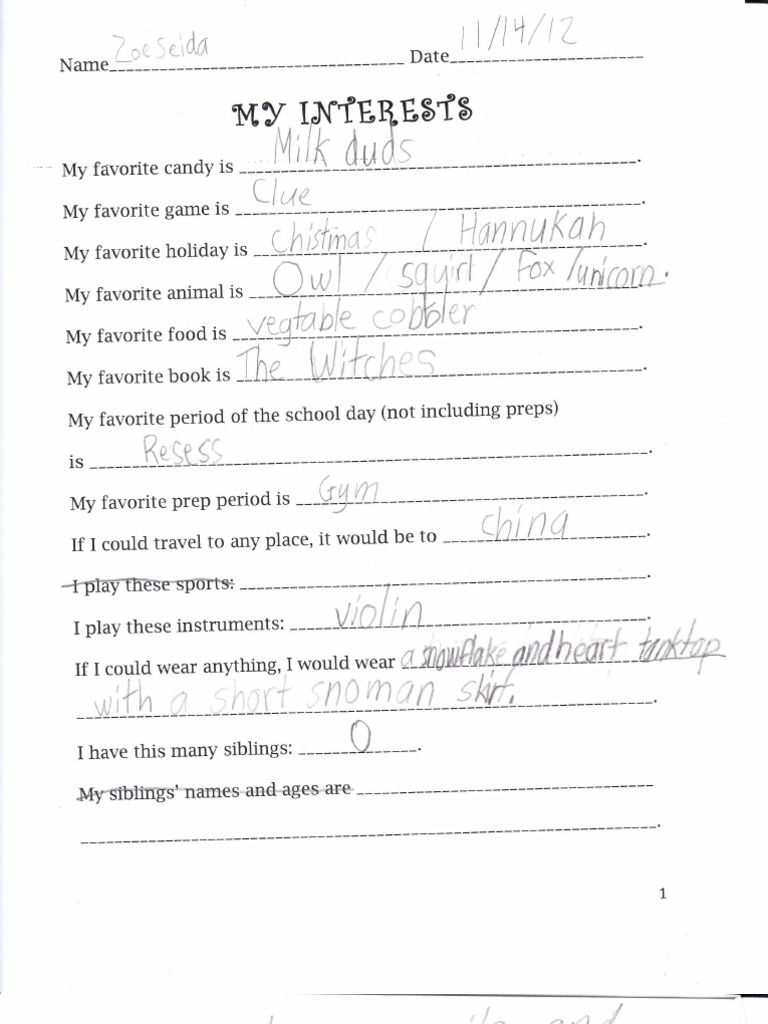 Name Zoe Seida Date 11/14/12
MY INTERESTS
My favorite candy is Milk duds.
My favorite game is Clue.
My favorite holiday is Chistmas / Hannukah.
My favorite animal is Owl / squirl / Fox / unicorn.
My favorite food is vegtable cobbler.
My favorite book is The Witches.
My favorite period of the school day (not including preps)
is Resess.
My favorite prep period is Gym.
If I could travel to any place, it would be to china.
I play these sports: .
I play these instruments: violin.
If I could wear anything, I would wear a snowflake and heart tanktop
with a short snoman skirt.
I have this many siblings: 0.
My siblings' names and ages are
1